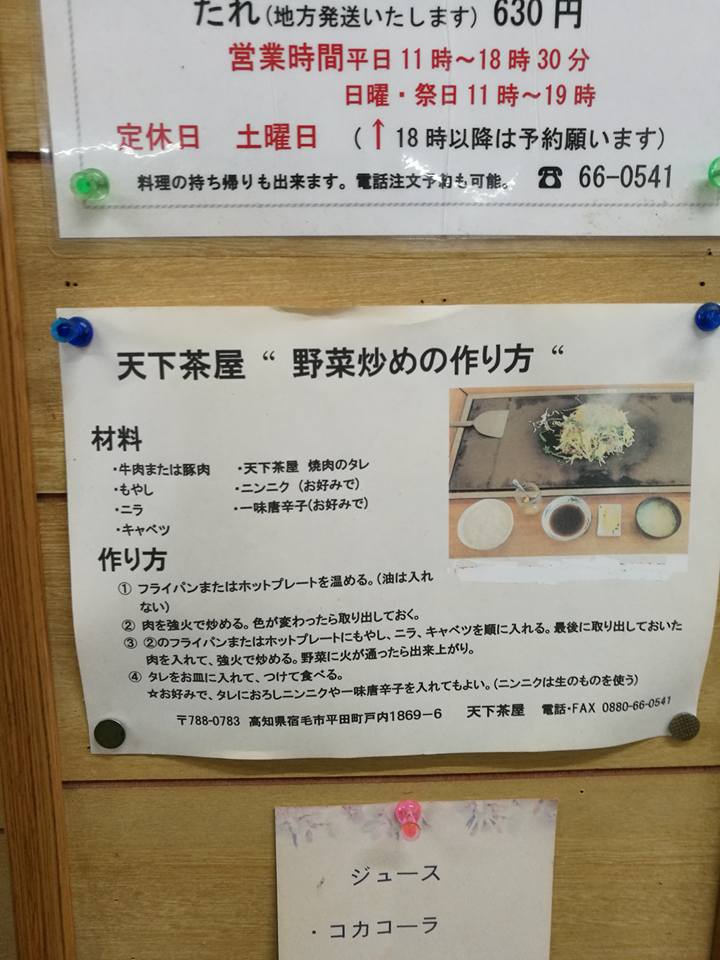 たれ(地方発送いたします) 630円
営業時間平日11時～18時30分
日曜・祭日11時～19時
定休日 土曜日 (↑18時以降は予約願います)
料理の持ち帰りも出来ます。電話注文予約も可能。 ☎ 66-0541
天下茶屋 “ 野菜炒めの作り方 “
材料
・牛肉または豚肉 ・天下茶屋 焼肉のタレ
・もやし ・ニンニク (お好みで)
・ニラ ・一味唐辛子(お好みで)
・キャベツ
作り方
① フライパンまたはホットプレートを温める。(油は入れ
ない)
② 肉を強火で炒める。色が変わったら取り出しておく。
③ ②のフライパンまたはホットプレートにもやし、ニラ、キャベツを順に入れる。最後に取り出しておいた
肉を入れて、強火で炒める。野菜に火が通ったら出来上がり。
④ タレをお皿に入れて、つけて食べる。
☆お好みで、タレにおろしニンニクや一味唐辛子を入れてもよい。(ニンニクは生のものを使う)
〒788-0783 高知県宿毛市平田町戸内1869－6 天下茶屋 電話・FAX 0880-66-0541
ジュース
・コカコーラ